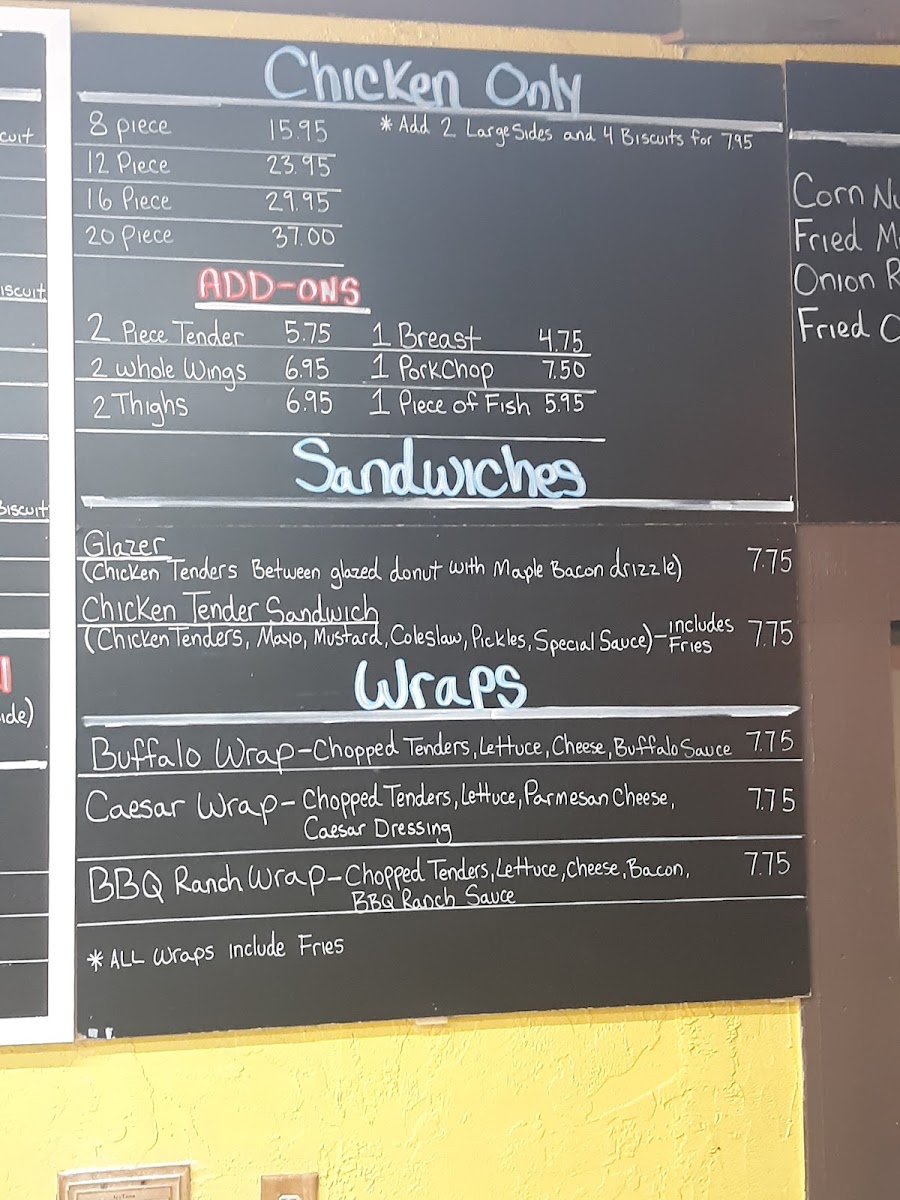 Chicken Only
8 piece 15.95 * Add 2 Large Sides and 4 Biscuits for 7.95
12 Piece 23.95
16 Piece 29.95
20 Piece 37.00
ADD-ONS
2 Piece Tender 5.75 1 Breast 4.75
2 whole Wings 6.95 1 PorkChop 7.50
2 Thighs 6.95 1 Piece of Fish 5.95
Sandwiches
Glazer
(Chicken Tenders Between glazed donut with Maple Bacon drizzle) 7.75
Chicken Tender Sandwich
(Chicken Tenders, Mayo, Mustard, Coleslaw, Pickles, Special Sauce)-includes Fries 7.75
Wraps
Buffalo Wrap-Chopped Tenders, Lettuce, Cheese, Buffalo Sauce 7.75
Caesar Wrap-Chopped Tenders, Lettuce, Parmesan Cheese, 7.75
Caesar Dressing
BBQ Ranch Wrap-Chopped Tenders, Lettuce, Cheese, Bacon, 7.75
BBQ Ranch Sauce
* ALL Wraps include Fries
cuit
iscuit
Biscuit
ide)
Corn Nu
Fried M
Onion R
Fried